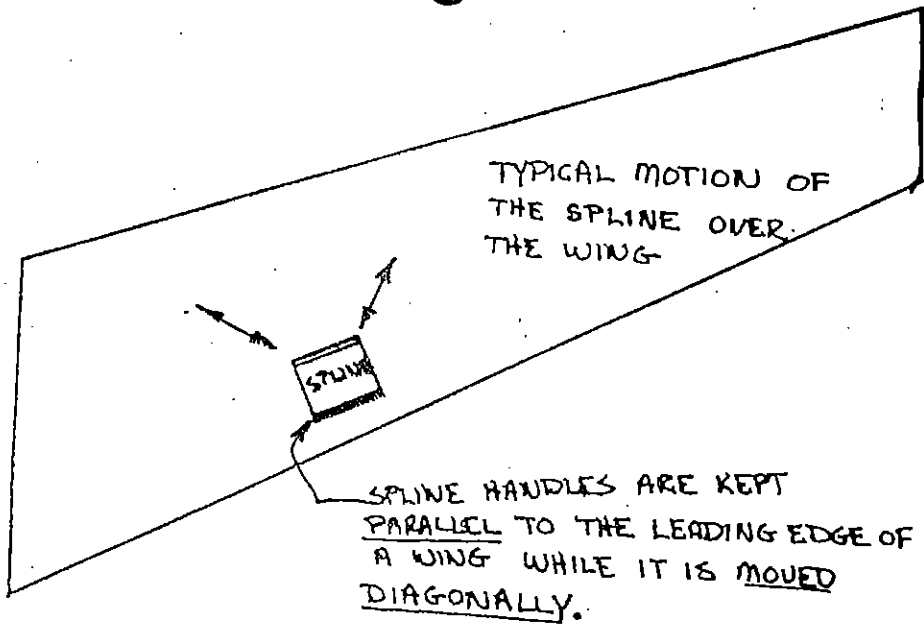 TYPICAL MOTION OF
THE SPLINE OVER
THE WING
SPLINE
SPLINE HANDLES ARE KEPT
PARALLEL TO THE LEADING EDGE OF
A WING WHILE IT IS MOVED
DIAGONALLY.